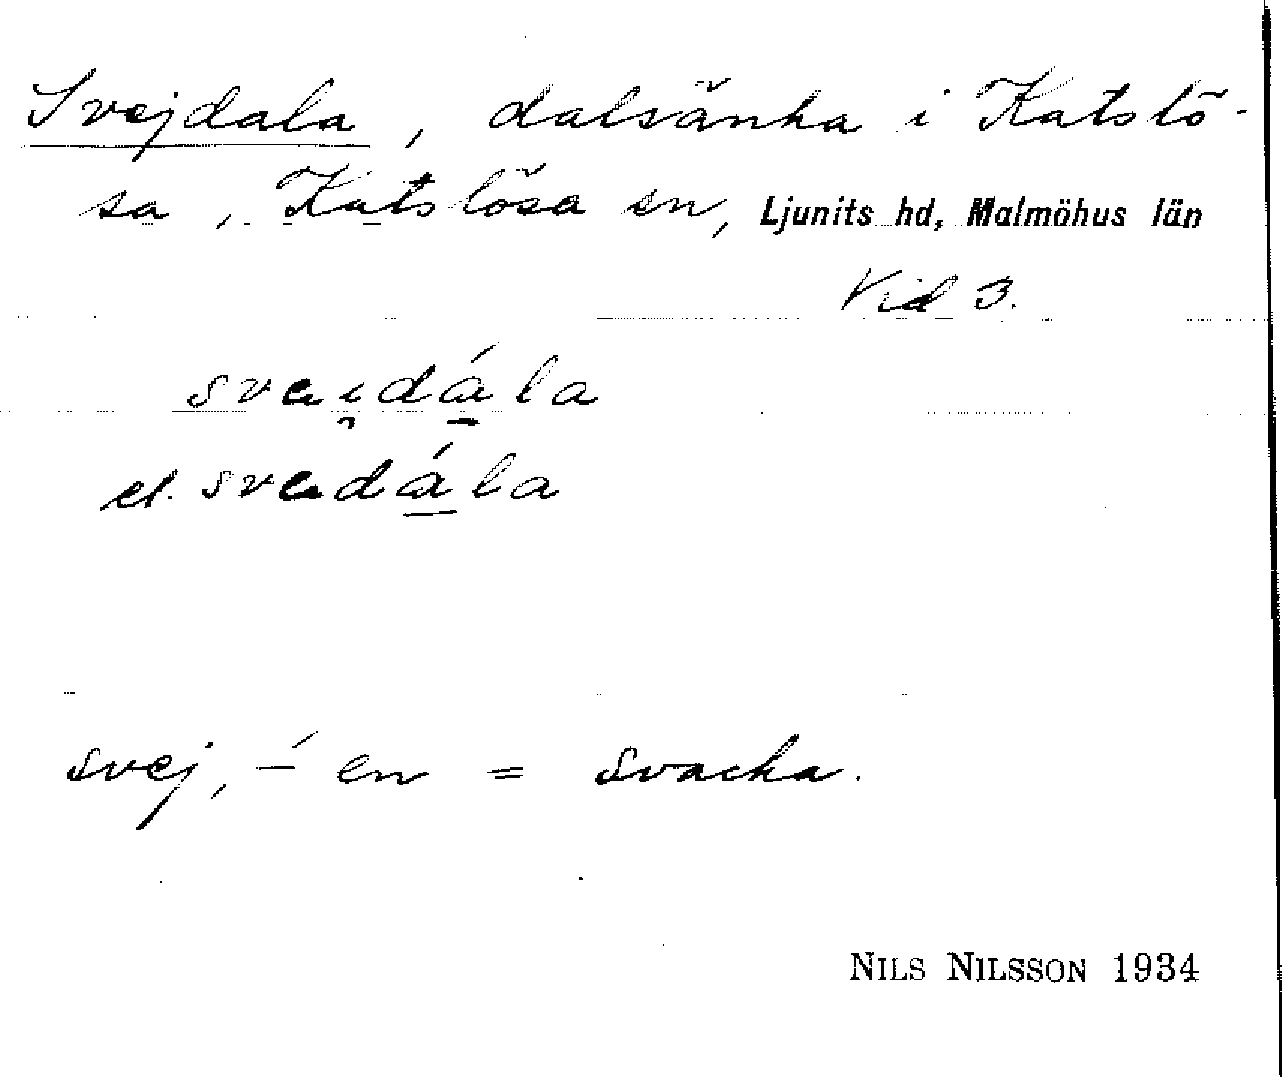 Svejdala, dalsänka i Katslö-
sa, Katslösa sn, Ljunits hd, Malmöhus län
Vid 3.
svai̯dá̱la
el. svadá̱la
svej, –́ en = svacka.
NILS NILSSON 1934